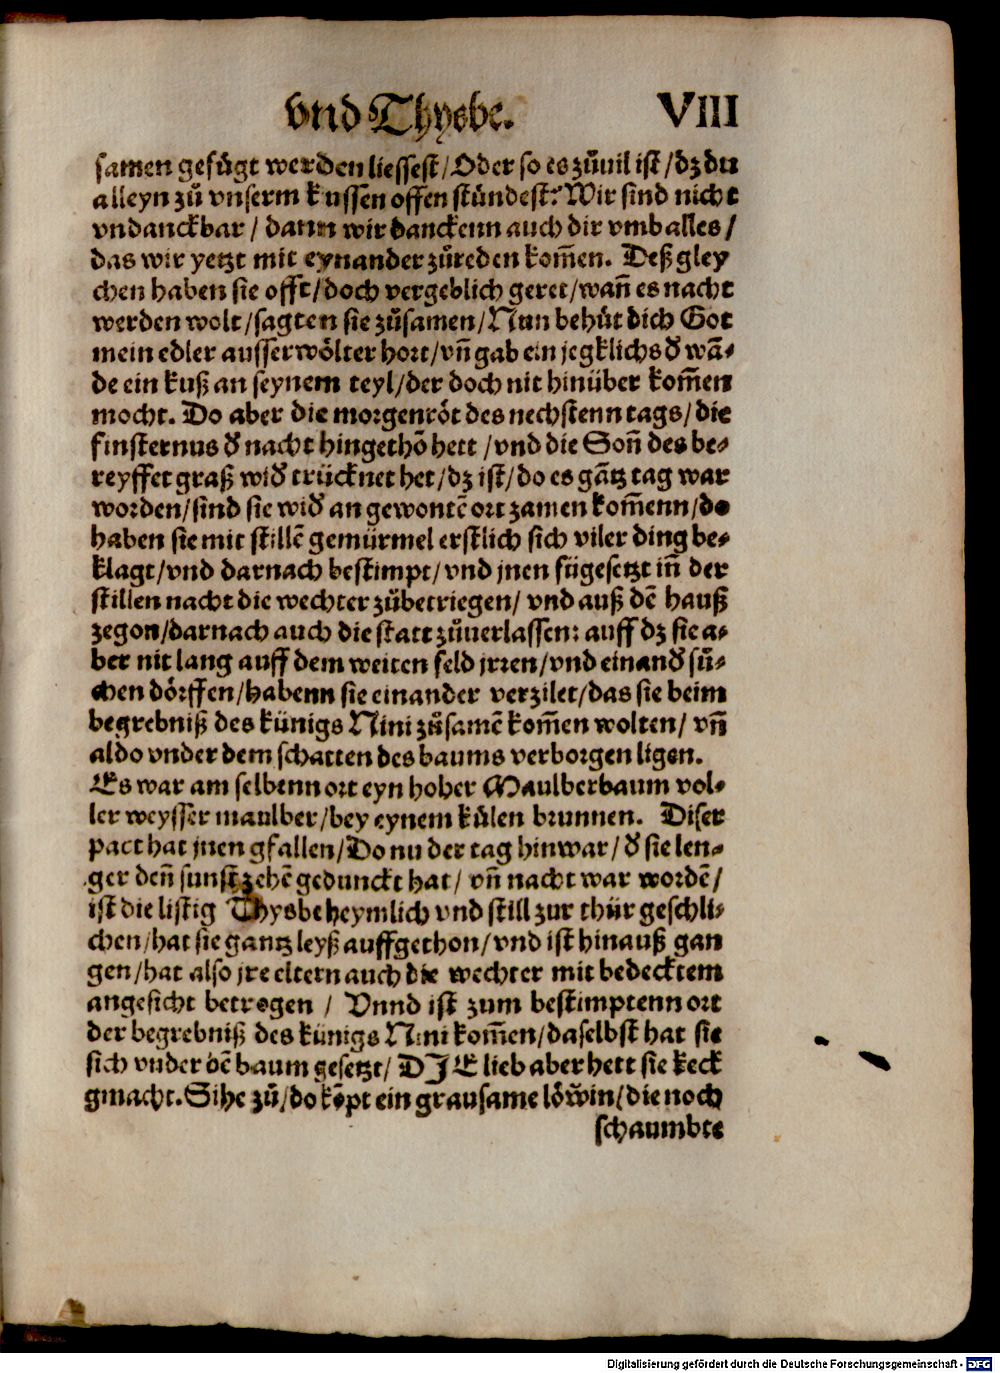 vnd Thysbe. VIII
samen gefügt werden liessest/Oder so es zůuil ist/dz du
alleyn zů vnserm kussen offen stündest? Wir sind nicht
vndanckbar/ dann wir danckenn auch dir vmb alles/
das wir yetzt mit eynander zůreden kom̄en. Deß gley
chen haben sie offt/doch vergeblich geret/wañ es nacht
werden wolt/sagten sie zůsamen/Nun behüt dich Got
mein edler ausserwölter hort/vñ gab ein jegklichs ď wā⸗
de ein kuß an seynem teyl/der doch nit hinüber kom̄en
mocht. Do aber die morgenröt des nechstenn tags/die
finsternus ď nacht hingethō hett/vnd die Soñ des be⸗
reyffet graß wiď trücknet het/dz ist/do es gātz tag war
worden/sind sie wiď an gewontē ort zamen kom̄enn/do
haben sie mit stillē gemürmel erstlich sich viler ding be⸗
klagt/vnd darnach bestimpt/vnd jnen fügesetzt iñ der
stillen nacht die wechter zůbetriegen/ vnd auß dē hauß
zegon/darnach auch die statt zůuerlassen: auff dz sie a⸗
ber nit lang auff dem weiten feld jrren/vnd einanď sů⸗
chen dörffen/habenn sie einander verzilet/das sie beim
begrebniß des künigs Nini zůsamē kom̄en wolten/ vñ
aldo vnder dem schatten des baums verborgen ligen.
Es war am selbenn ort eyn hoher Maulberbaum vol⸗
ler weysser maulber/bey eynem külen brunnen. Diser
pact hat jnen gfallen/Do nu der tag hinwar/ď sie len⸗
ger deñ sunst zehē gedunckt hat/ vñ nacht war wordē/
ist die listig Thysbe heymlich vnd still zur thür geschli⸗
chen/hat sie gantz leyß auffgethon/vnd ist hinauß gan
gen/hat also jre eltern auch die wechter mit bedecktem
angesicht betrogen / Vnnd ist zum bestimptenn ort
der begrebniß des künigs Nini kom̄en/daselbst hat sie
sich vnder dē baum gesetzt/ DIE lieb aber hett sie keck
gmacht. Sihe zů/do kōpt ein grausame löwin/die noch
schaumbte
Digitalisierung gefördert durch die Deutsche Forschungsgemeinschaft - DFG